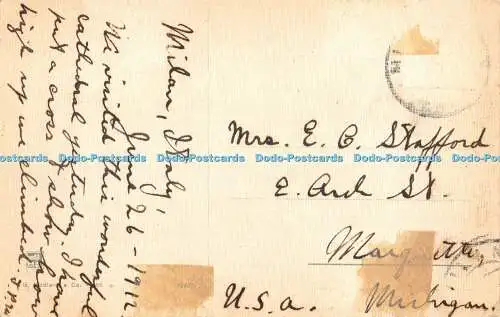 Milan, Italy,
June 26-1912
We visited this wonderful
cathedral yesterday. I have
put a cross to show how
high up we climbed
Mrs. E. C. Stafford
E. Arch St.
Marquette,
Michigan.
U.S.A.
Dodo-Postcards Dodo-Postcards Dodo-Postcards Dodo-Postcards Dodo-Postcards